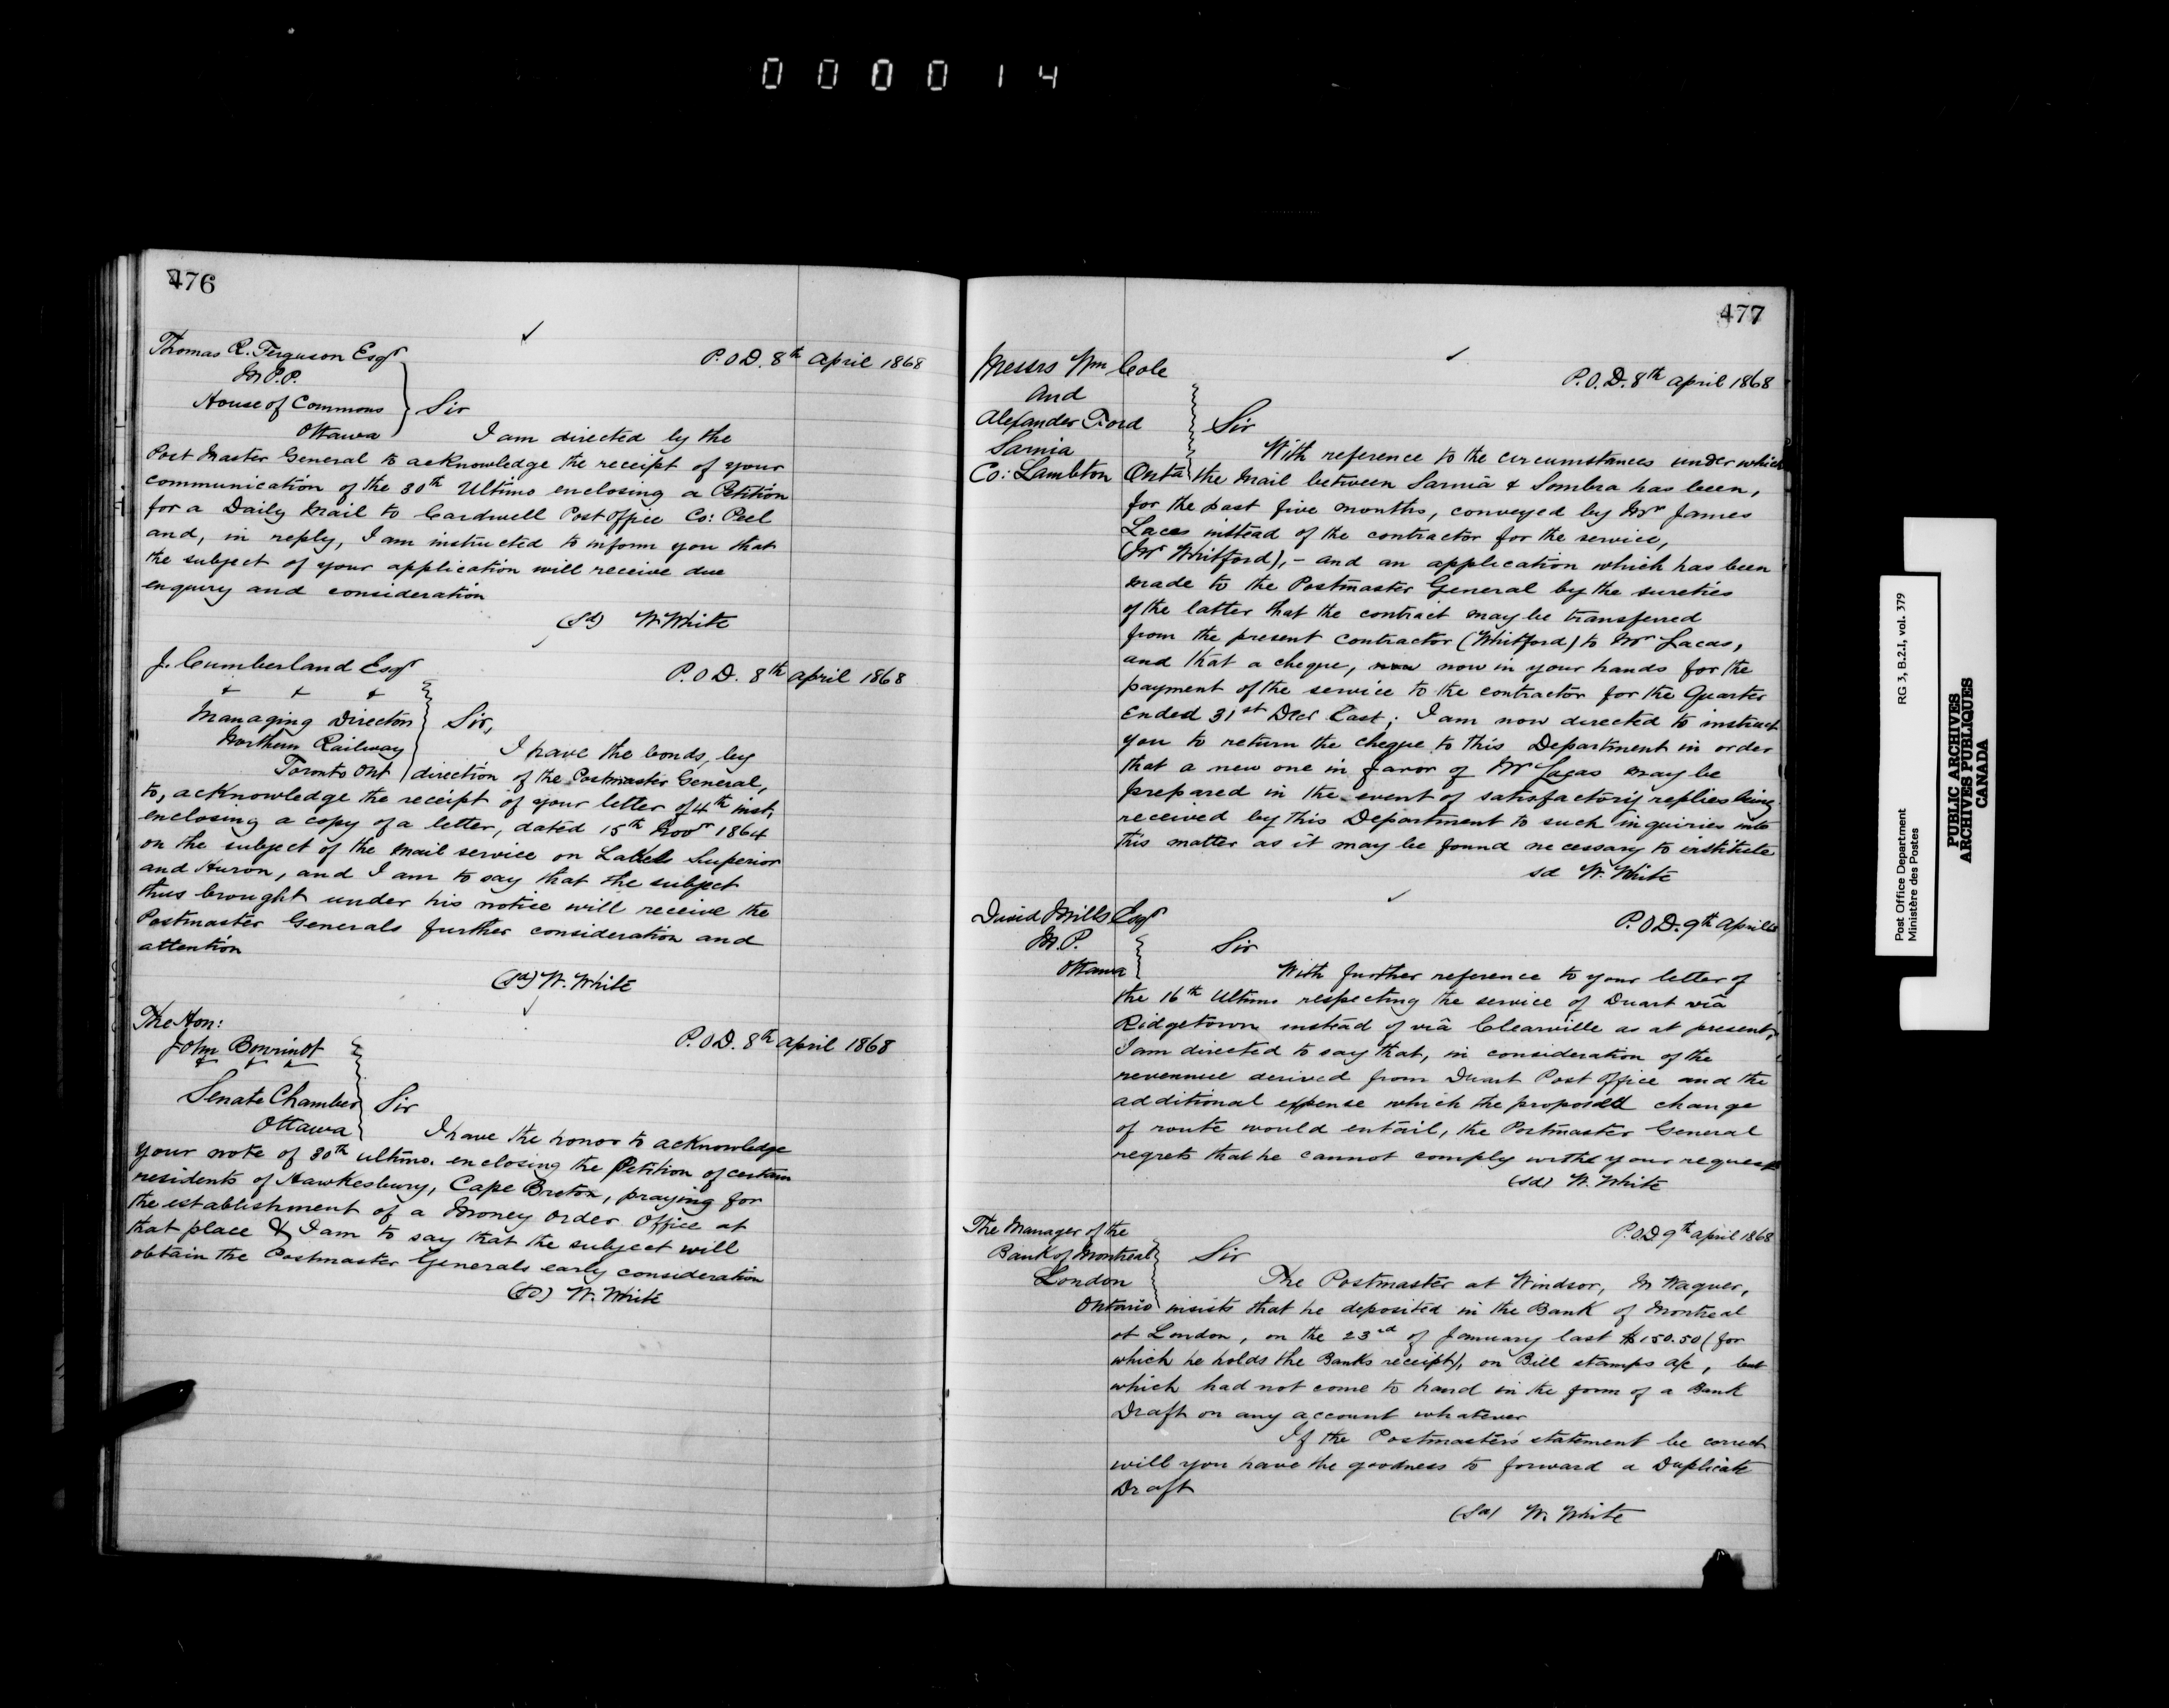 000014
476
Thomas R. Ferguson Esqr
M.P.P.
House of Commons
Ottawa
P.O.D. 8th April 1868
Sir
I am directed by the
Post Master General to acknowledge the receipt of your
communication of the 30th Ultimo enclosing a Petition
for a Daily Mail to Cardwell Post Office Co: Peel
and, in reply, I am instructed to inform you that
the subject of your application will receive due
enquiry and consideration
(Sd) W. White
J. Cumberland Esqr
Managing Director
Northern Railway
Toronto Ont
P.O.D. 8th April 1868
Sir,
I have the bonds, by
direction of the Postmaster General,
to, acknowledge the receipt of your letter of 4th inst,
enclosing a copy of a letter, dated 15th Novr 1864
on the subject of the mail service on Lakes Superior
and Huron, and I am to say that the subject
thus brought under his notice will receive the
Postmaster Generals further consideration and
attention
(Sd) W. White
The Hon:
John Bourinot
Senate Chamber
Ottawa
P.O.D. 8th April 1868
Sir
I have the honor to acknowledge
your note of 30th ultimo. enclosing the Petition of certain
residents of Hawkesbury, Cape Breton, praying for
the establishment of a Money Order Office at
that place & I am to say that the subject will
obtain the Postmaster Generals early consideration
(Sd) W. White
477
Messrs Wm Cole
And
Alexander Ford
Sarnia
Co: Lambton Onta
P.O.D. 8th April 1868
Sir
With reference to the circumstances under which
the Mail between Sarnia & Sombra has been,
for the past five months, conveyed by Mr James
Lacas instead of the contractor for the service,
(Mr Whitford), - and an application which has been
made to the Postmaster General by the sureties
of the latter that the contract may be transferred
from the present contractor (Whitford) to Mr Lacas,
and that a cheque, now now in your hands for the
payment of the service to the contractor for the Quarter
Ended 31st Decr Last; I am now directed to instruct
you to return the cheque to this Department in order
that a new one in favor of Mr Lacas may be
prepared in the event of satisfactory replies being
received by this Department to such inquiries into
this matter as it may be found necessary to institute
sd W. White
David Mills Esqr
M.P.
Ottawa
P.O.D. 9th April
Sir
With further reference to your letter of
the 16th Ultimo respecting the service of Duart viâ
Ridgetown instead of viâ Clearville as at present,
I am directed to say that, in consideration of the
revenue derived from Duart Post Office and the
additional expense which the proposed change
of route would entail, the Postmaster General
regrets that he cannot comply with your request
(sd) W. White
The Manager of the
Bank of Montreal
London
Ontario
P.O.D 9th April 1868
Sir
The Postmaster at Windsor, Mr Wagner,
insists that he deposited in the Bank of Montreal
at London, on the 23rd of January last $150.50 (for
which he holds the Banks receipt), on Bill stamps a/c, but
which had not come to hand in the form of a Bank
Draft on any account whatever
If the Postmaster's statement be correct
will you have the goodness to forward a Duplicate
Draft
(Sd) W. White
Post Office Department RG 3, B.2.I., vol. 379
Ministère des Postes
PUBLIC ARCHIVES
ARCHIVES PUBLIQUES
CANADA